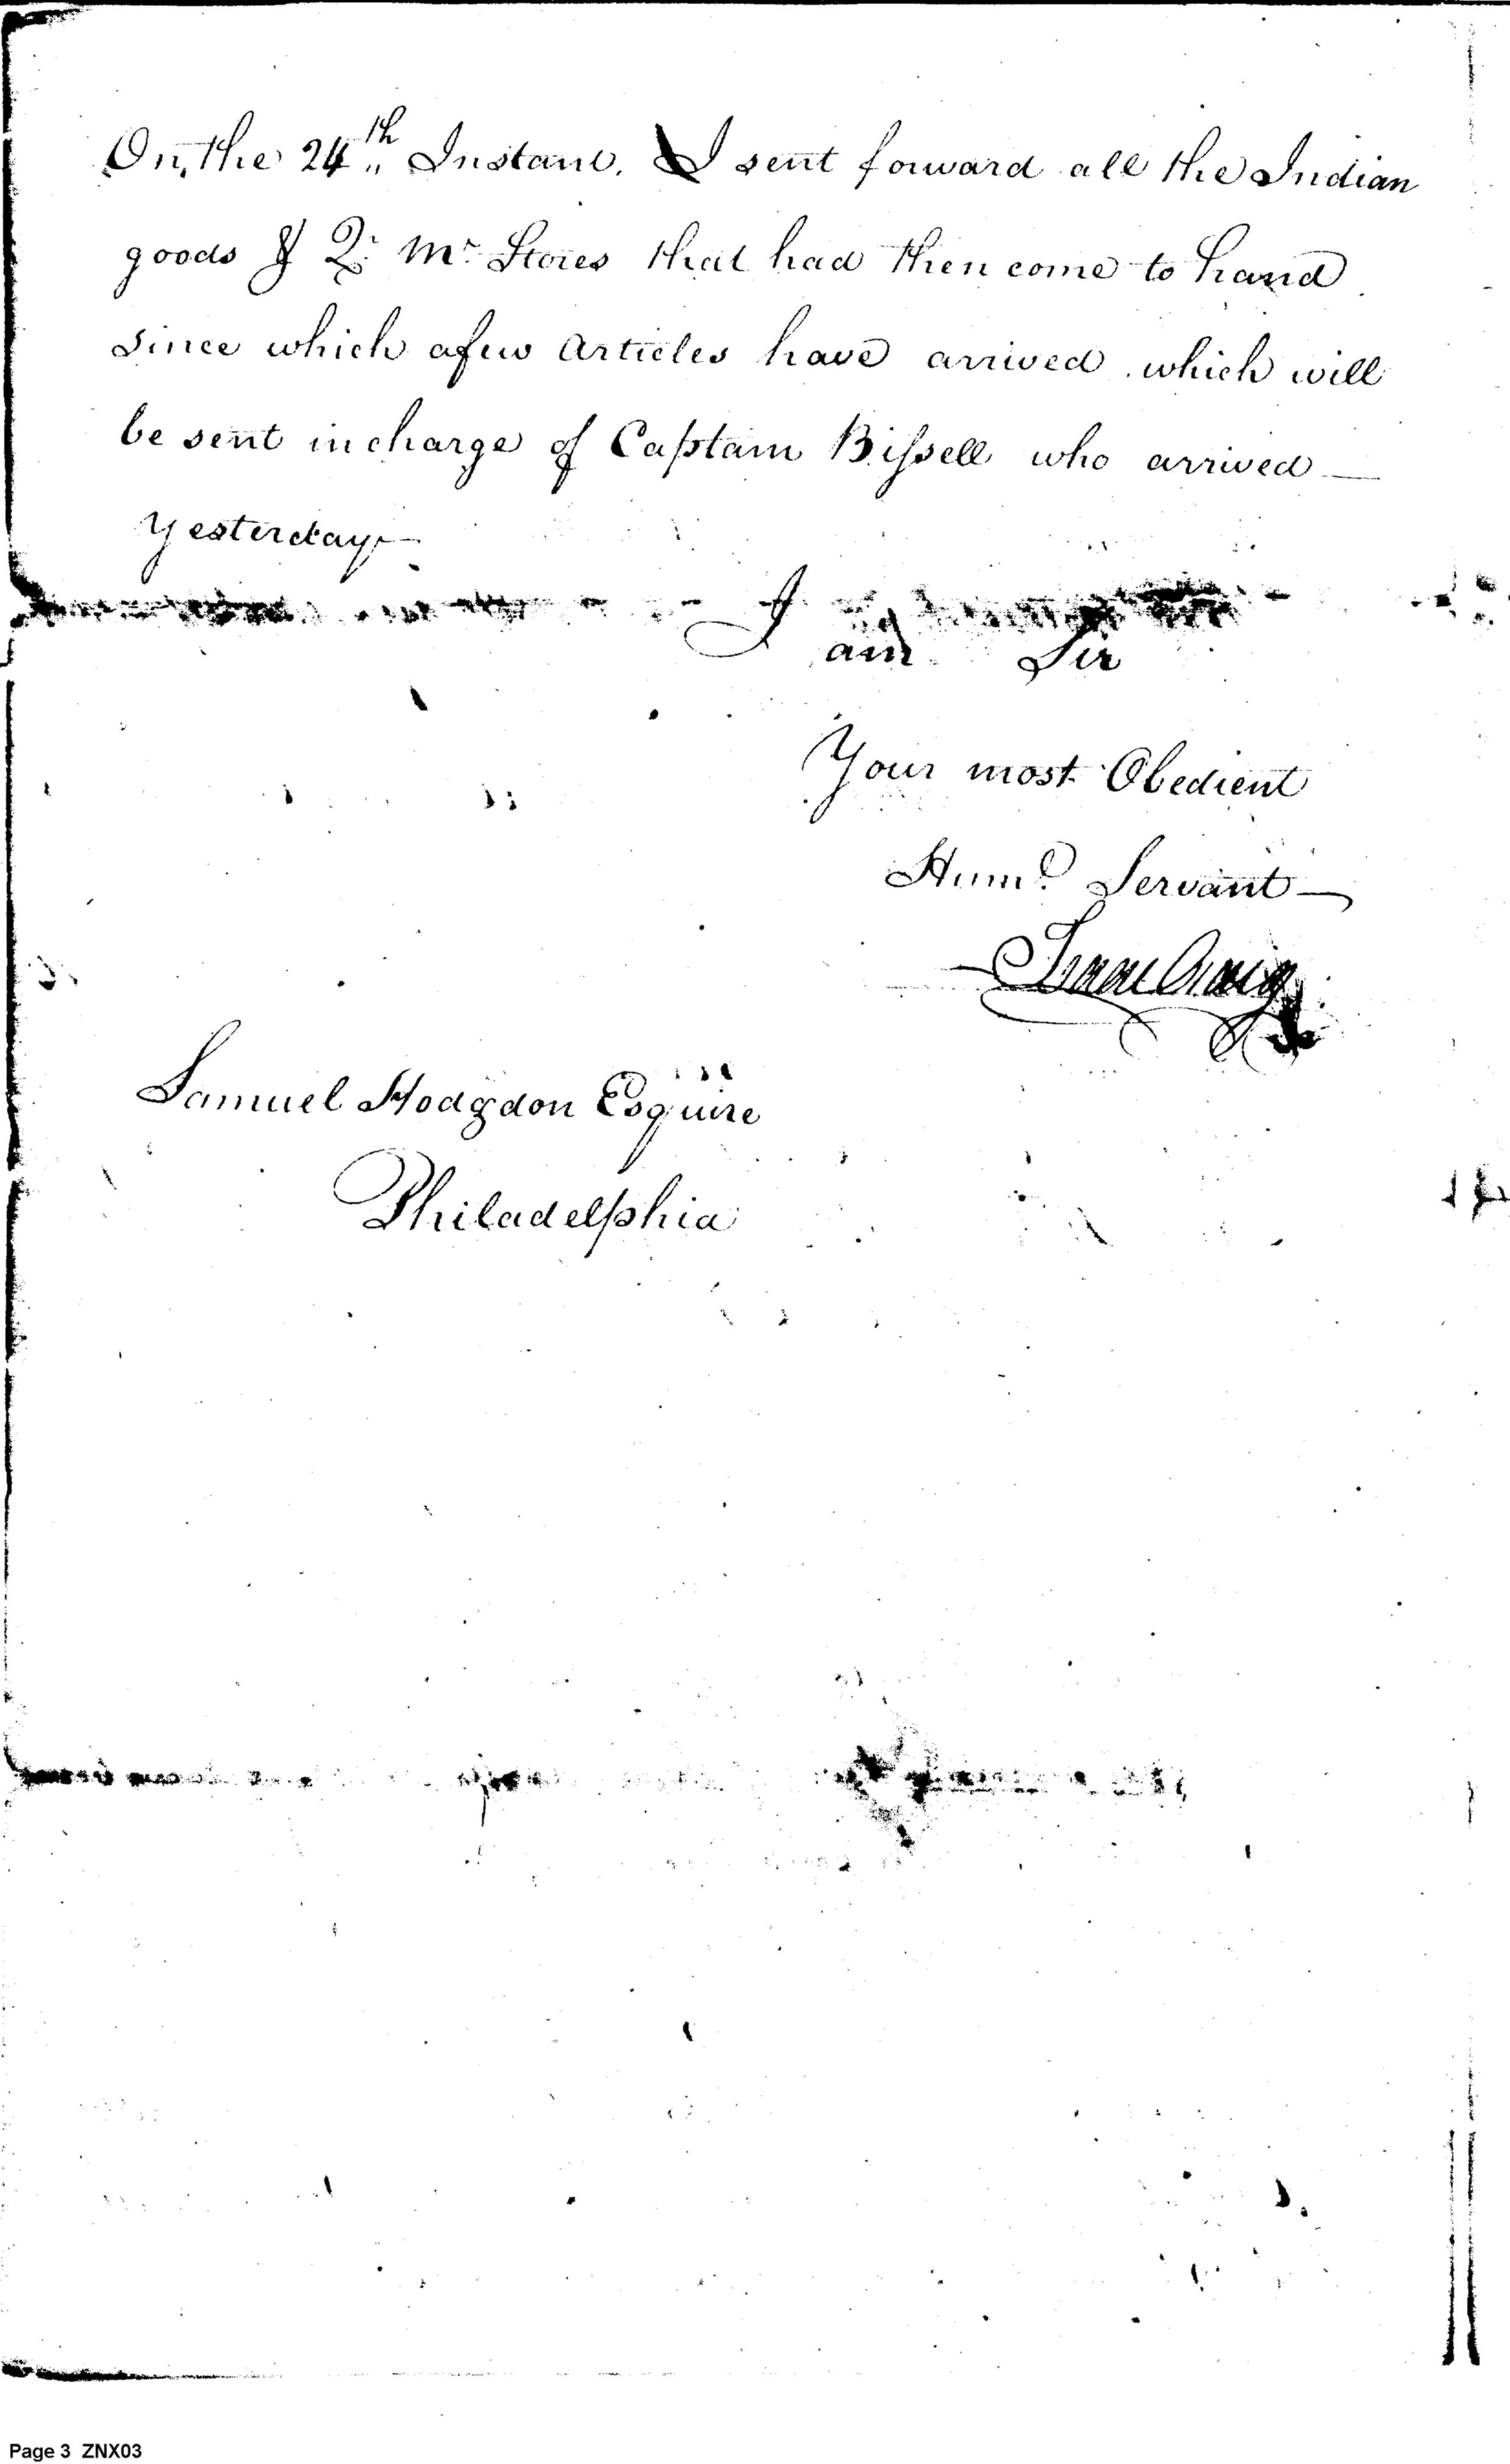 On the 24th Instant. I sent forward all the Indian
goods & Qr. Mr. Stores that had then come to hand
since which a few Articles have arrived which will
be sent in charge of Captain Bissell who arrived —
Yesterday —
I am Sir
Your most Obedient
Hume. Servant —
Isaac Craig
Samuel Hodgdon Esquire
Philadelphia
Page 3 ZNX03